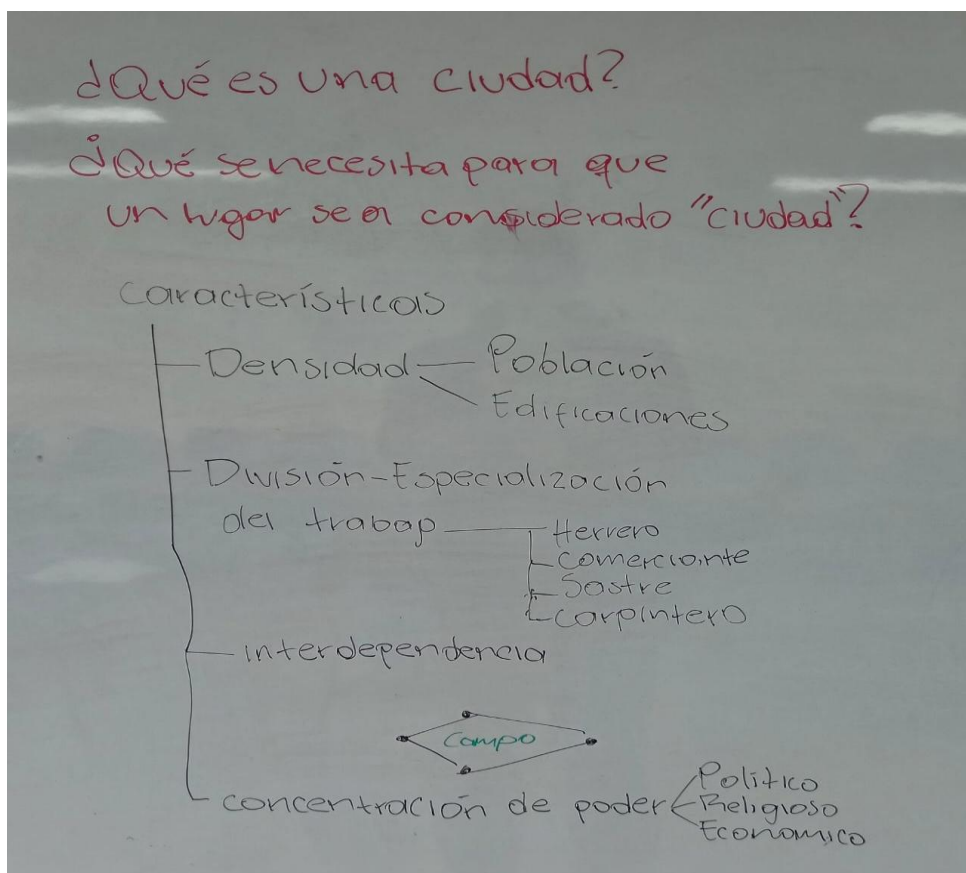 ¿Qué es una ciudad?
¿Qué se necesita para que
un lugar sea considerado "ciudad"?
Características
Densidad
Población
Edificaciones
División-Especialización
del trabajo
Herrero
Comerciante
Sastre
Carpintero
interdependencia
Campo
concentración de poder
Político
Religioso
Economico